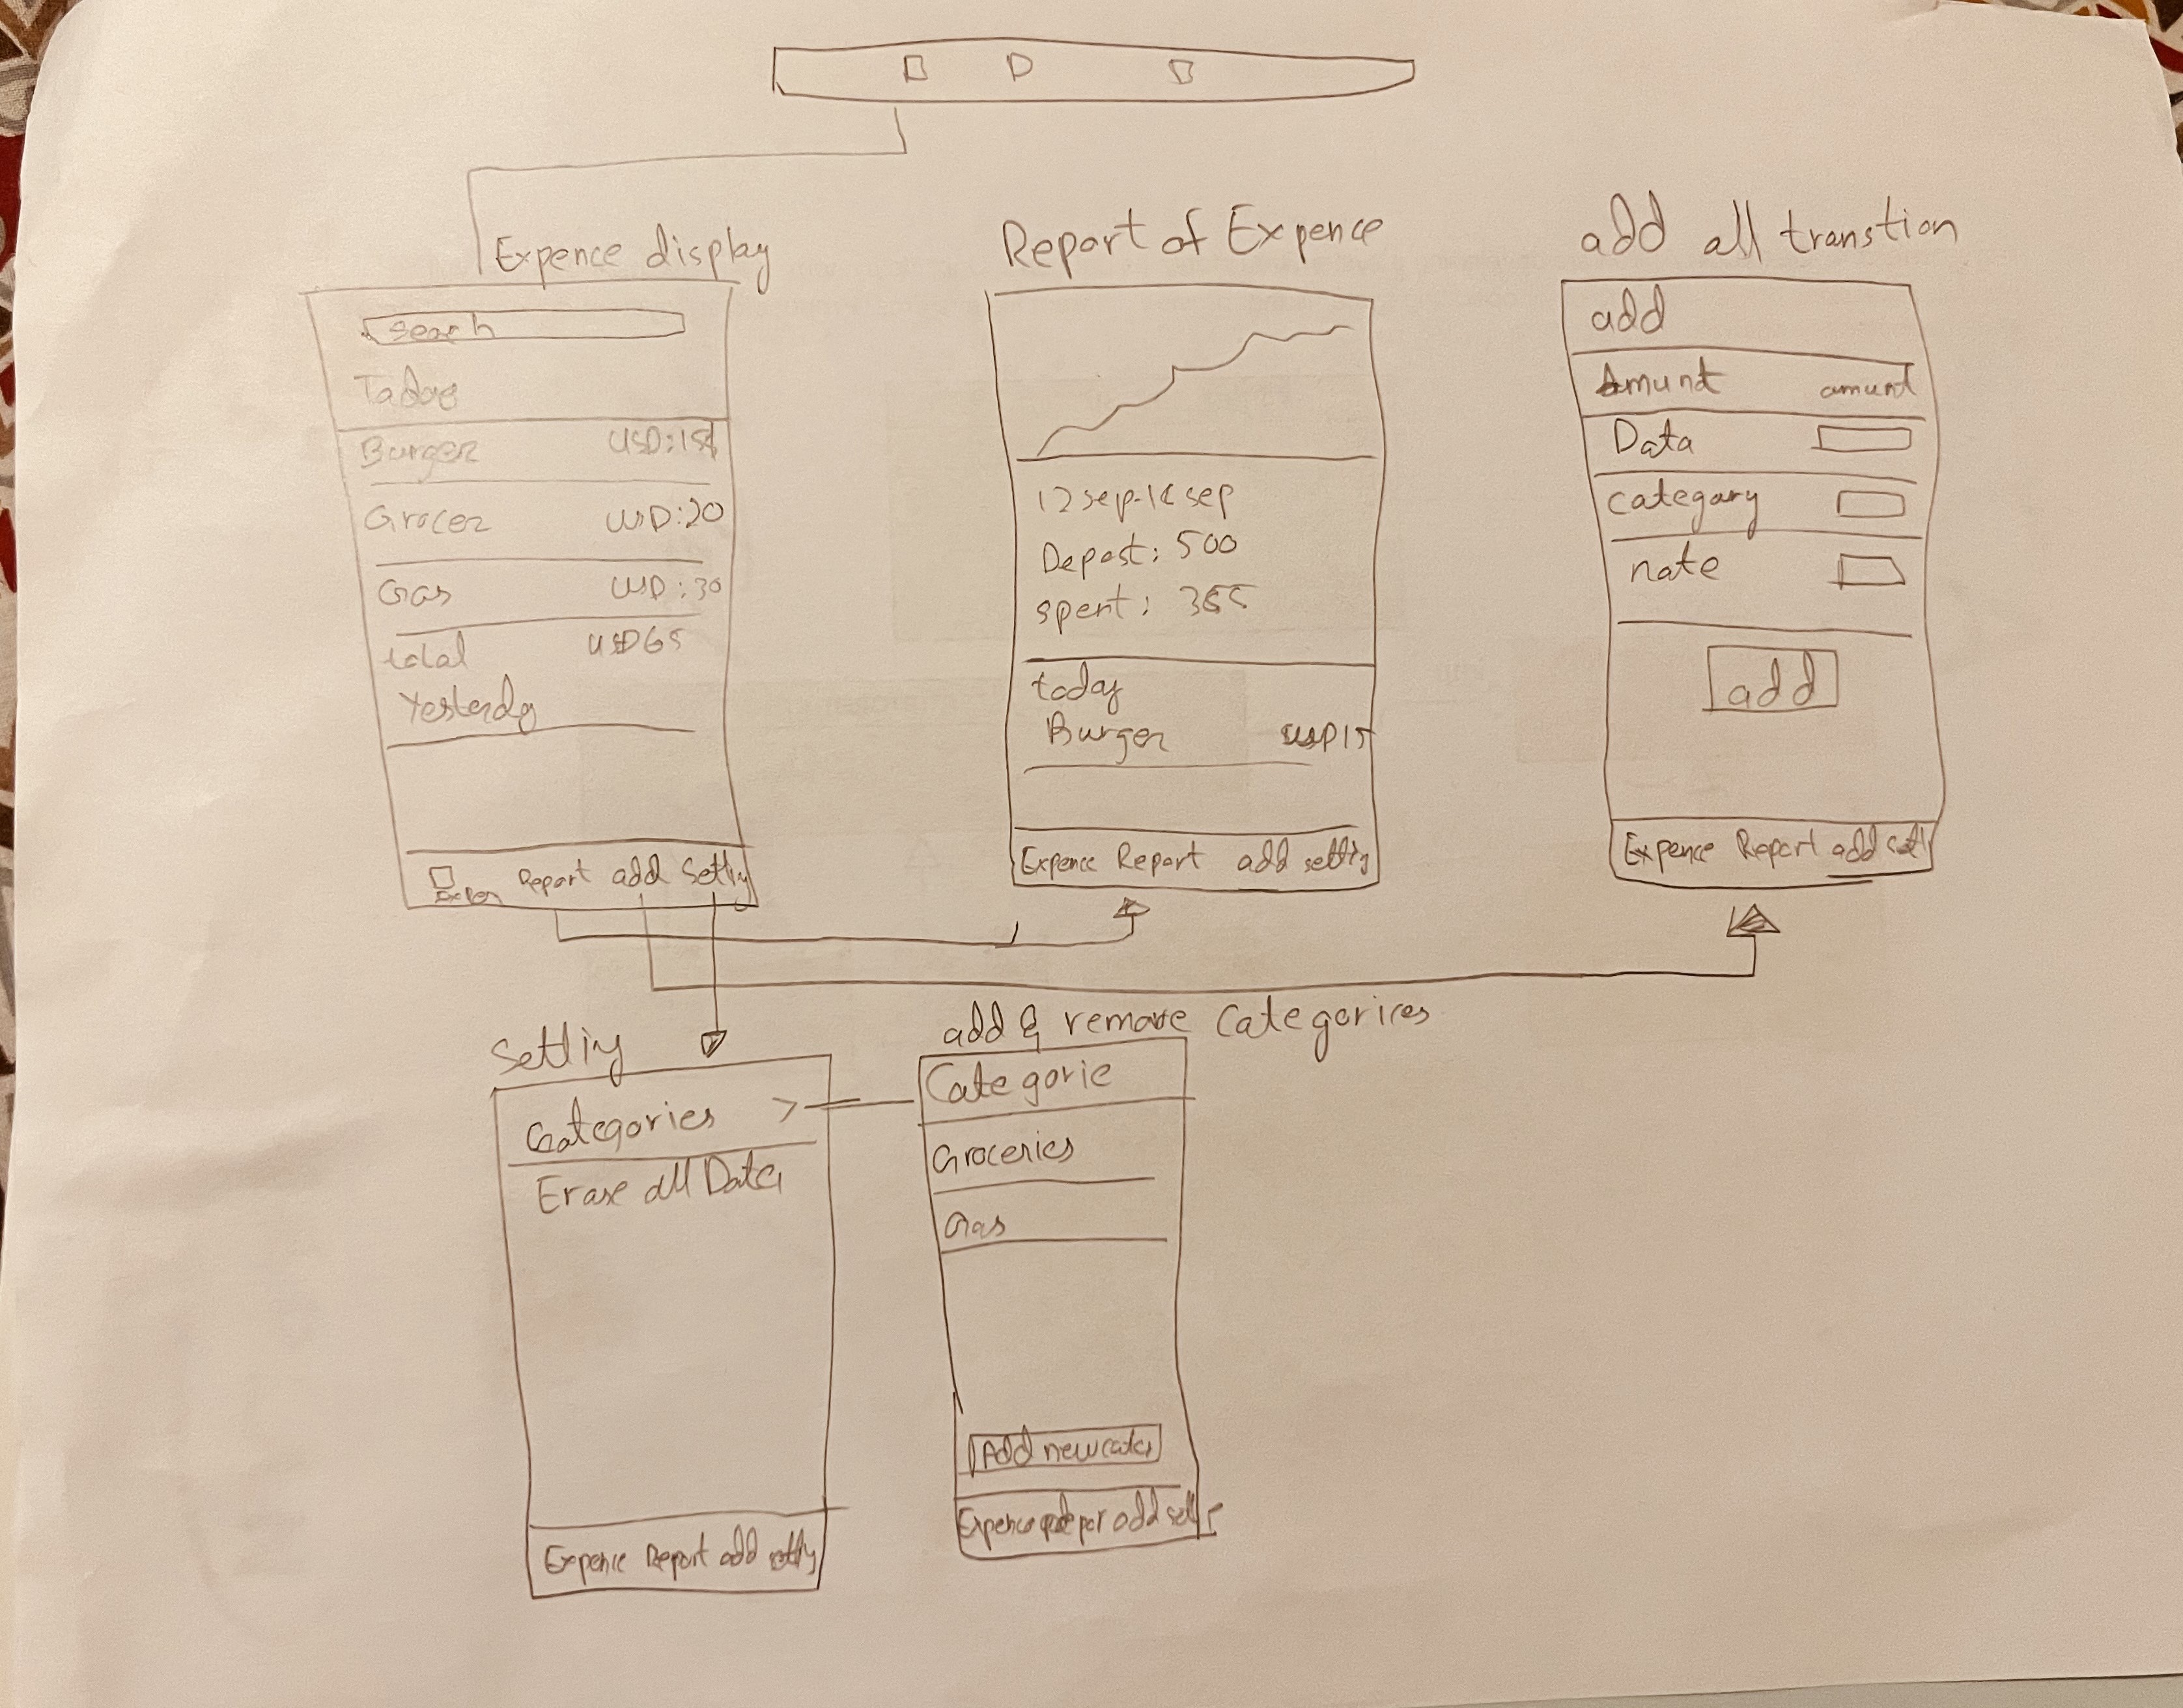 Expence display
search
Today
Burger USD:15
Grocer USD:20
Gas USD:30
total USD65
Yesterdy
Expen Report add Settiy
Report of Expence
12 sep-1 sep
Depost: 500
spent: 355
today
Burger USD15
Expence Report add settiy
add all transtion
add
Amunt amunt
Data
categary
nate
add
Expence Report add setti
Settiy
Categories >
Erase all Data
Expence Report add settiy
add & remove Categorices
Categorie
Groceries
Gas
Add new cate
Expence add